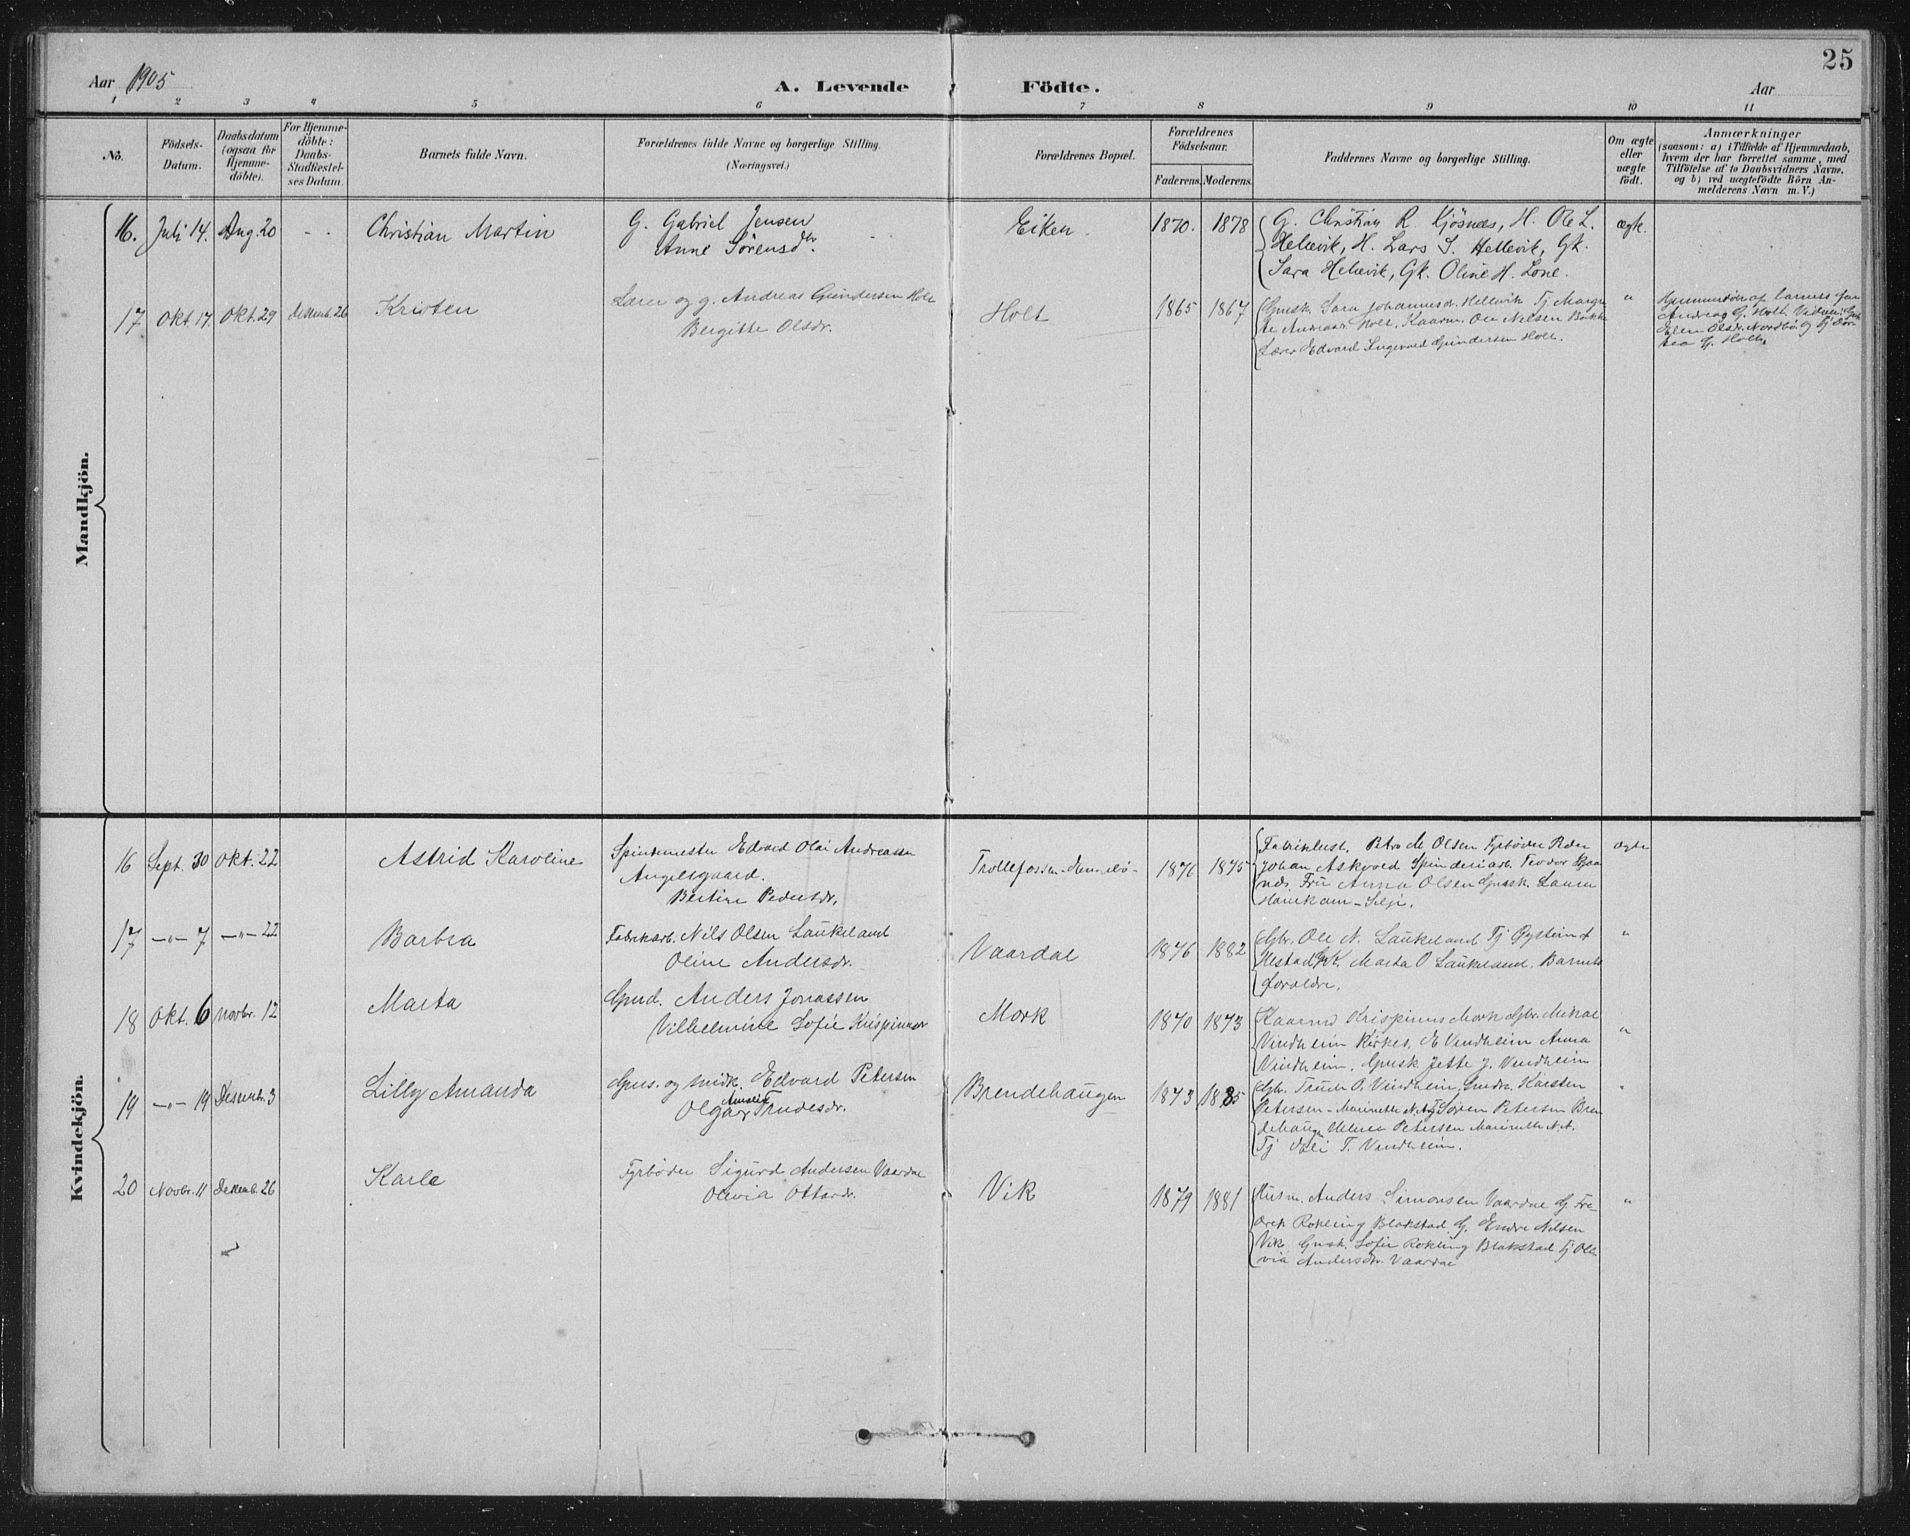 25
Aar 1905
A. Levende Födte.
Aar
1 2 3 4 5 6 7 8 9 10 11
No.
Födsels-
Datum.
Daabsdatum
(ogsaa for
Hjemme-
döbte).
For Hjemme-
döbte:
Daabs-
Stadfæstel-
ses Datum.
Barnets fulde Navn.
Forældrenes fulde Navne og borgerlige Stilling.
(Næringsvei.)
Forældrenes Bopæl.
Forældrenes
Födselsaar.
Faderens. Moderens.
Faddernes Navne og borgerlige Stilling.
Om ægte
eller
uægte
födt.
Anmærkninger
(saasom: a) i Tilfælde af Hjemmedaab,
hvem der har forrettet samme, med
Tilföielse af to Daabsvidners Navne,
og b) ved uægtefödte Börn An-
melderens Navn m. V.)
Mandkjön.
16. Juli 14. Aug. 20 - - Christian Martin
G. Gabriel Jensen
Anne Sörensdtr.
Eiken. 1870. 1878
G. Christian R. Kjösnes, H. Ole L.
Hellevik, H. Lars S. Hellevik, Gk.
Sara Hellevik, Gk. Oline H. Lone.
ægte.
17 Okt. 17. Okt. 29 Desemb. 26 Kristen
Lærer og g. Andreas Gundersen Holt
Bergitte Olsdr.
Holt 1865 1867
Gmsk. Sara Johannesdr. Hellevik Tj. Margre
te Andreasdr. Holt, Kaarm. Ole Nilsen
Lærer Edvard Ingevald Gundersen Holt.
"
Hjemmedöbt af barnets far
Andreas G. Holt. Vidner:
Elen Olsdr. Nordbö og Tj.
G. Holt.
Kvindekjön.
16 Sept. 30 Okt. 22 Astrid Karoline
Spindemester Edvard Olai Andreassen
Angelsgaard.
Bertine Pedersdr.
1876 1875
Fabrikbest. M Olsen Fyrböder Peder
Johan Askvoed Spinderiarb. Teodor
Fru Anna Olsen Gmsk. Laura
ægte
17 -"- 7 -"- 22 Barbra
Fabrikarb. Nils Olsen Laukeland
Oline Andersdr.
Vaardal 1876 1882
Gbr. Ole N. Laukeland Tj Öystein
Marta O Laukeland. Barnets
foreldre.
"
18 Okt. 6 Novbr. 12 Marta
Gmd. Anders Jonassen
Vilhelmine Sofie
Mork 1870 1873
Kaarmd Krispinus Mork Gbr. Mikal
Vindheim Kirkes. E Vindheim Anna
Vindheim. Gmsk Jette J. Vindheim
"
19 -"- 19 Desemb. 3 Lilly Amanda
Gms. og smidk. Edvard Petersen
Amalie
Olga Trudesdr.
Brendehaugen 1873 1885
Gbr. Trude O. Vindheim, Karsten
Petersen - Sören Petersen Bren
dehaugen Petersen
Tj T. Vindheim.
"
20 Novbr. 11 Desemb. 26 Karla
Fyrböder Sigurd Andersen Vaardal
Olivia Ottarsdr.
Vik 1879 1881
Husm. Anders Simonsen Vaardal G Fre-
derik Rokling Blakstad G. Endre Nilsen
Vik Gmsk. Sofie Rokling Blakstad Tj Oli
via Andersdr. Vaardal
"